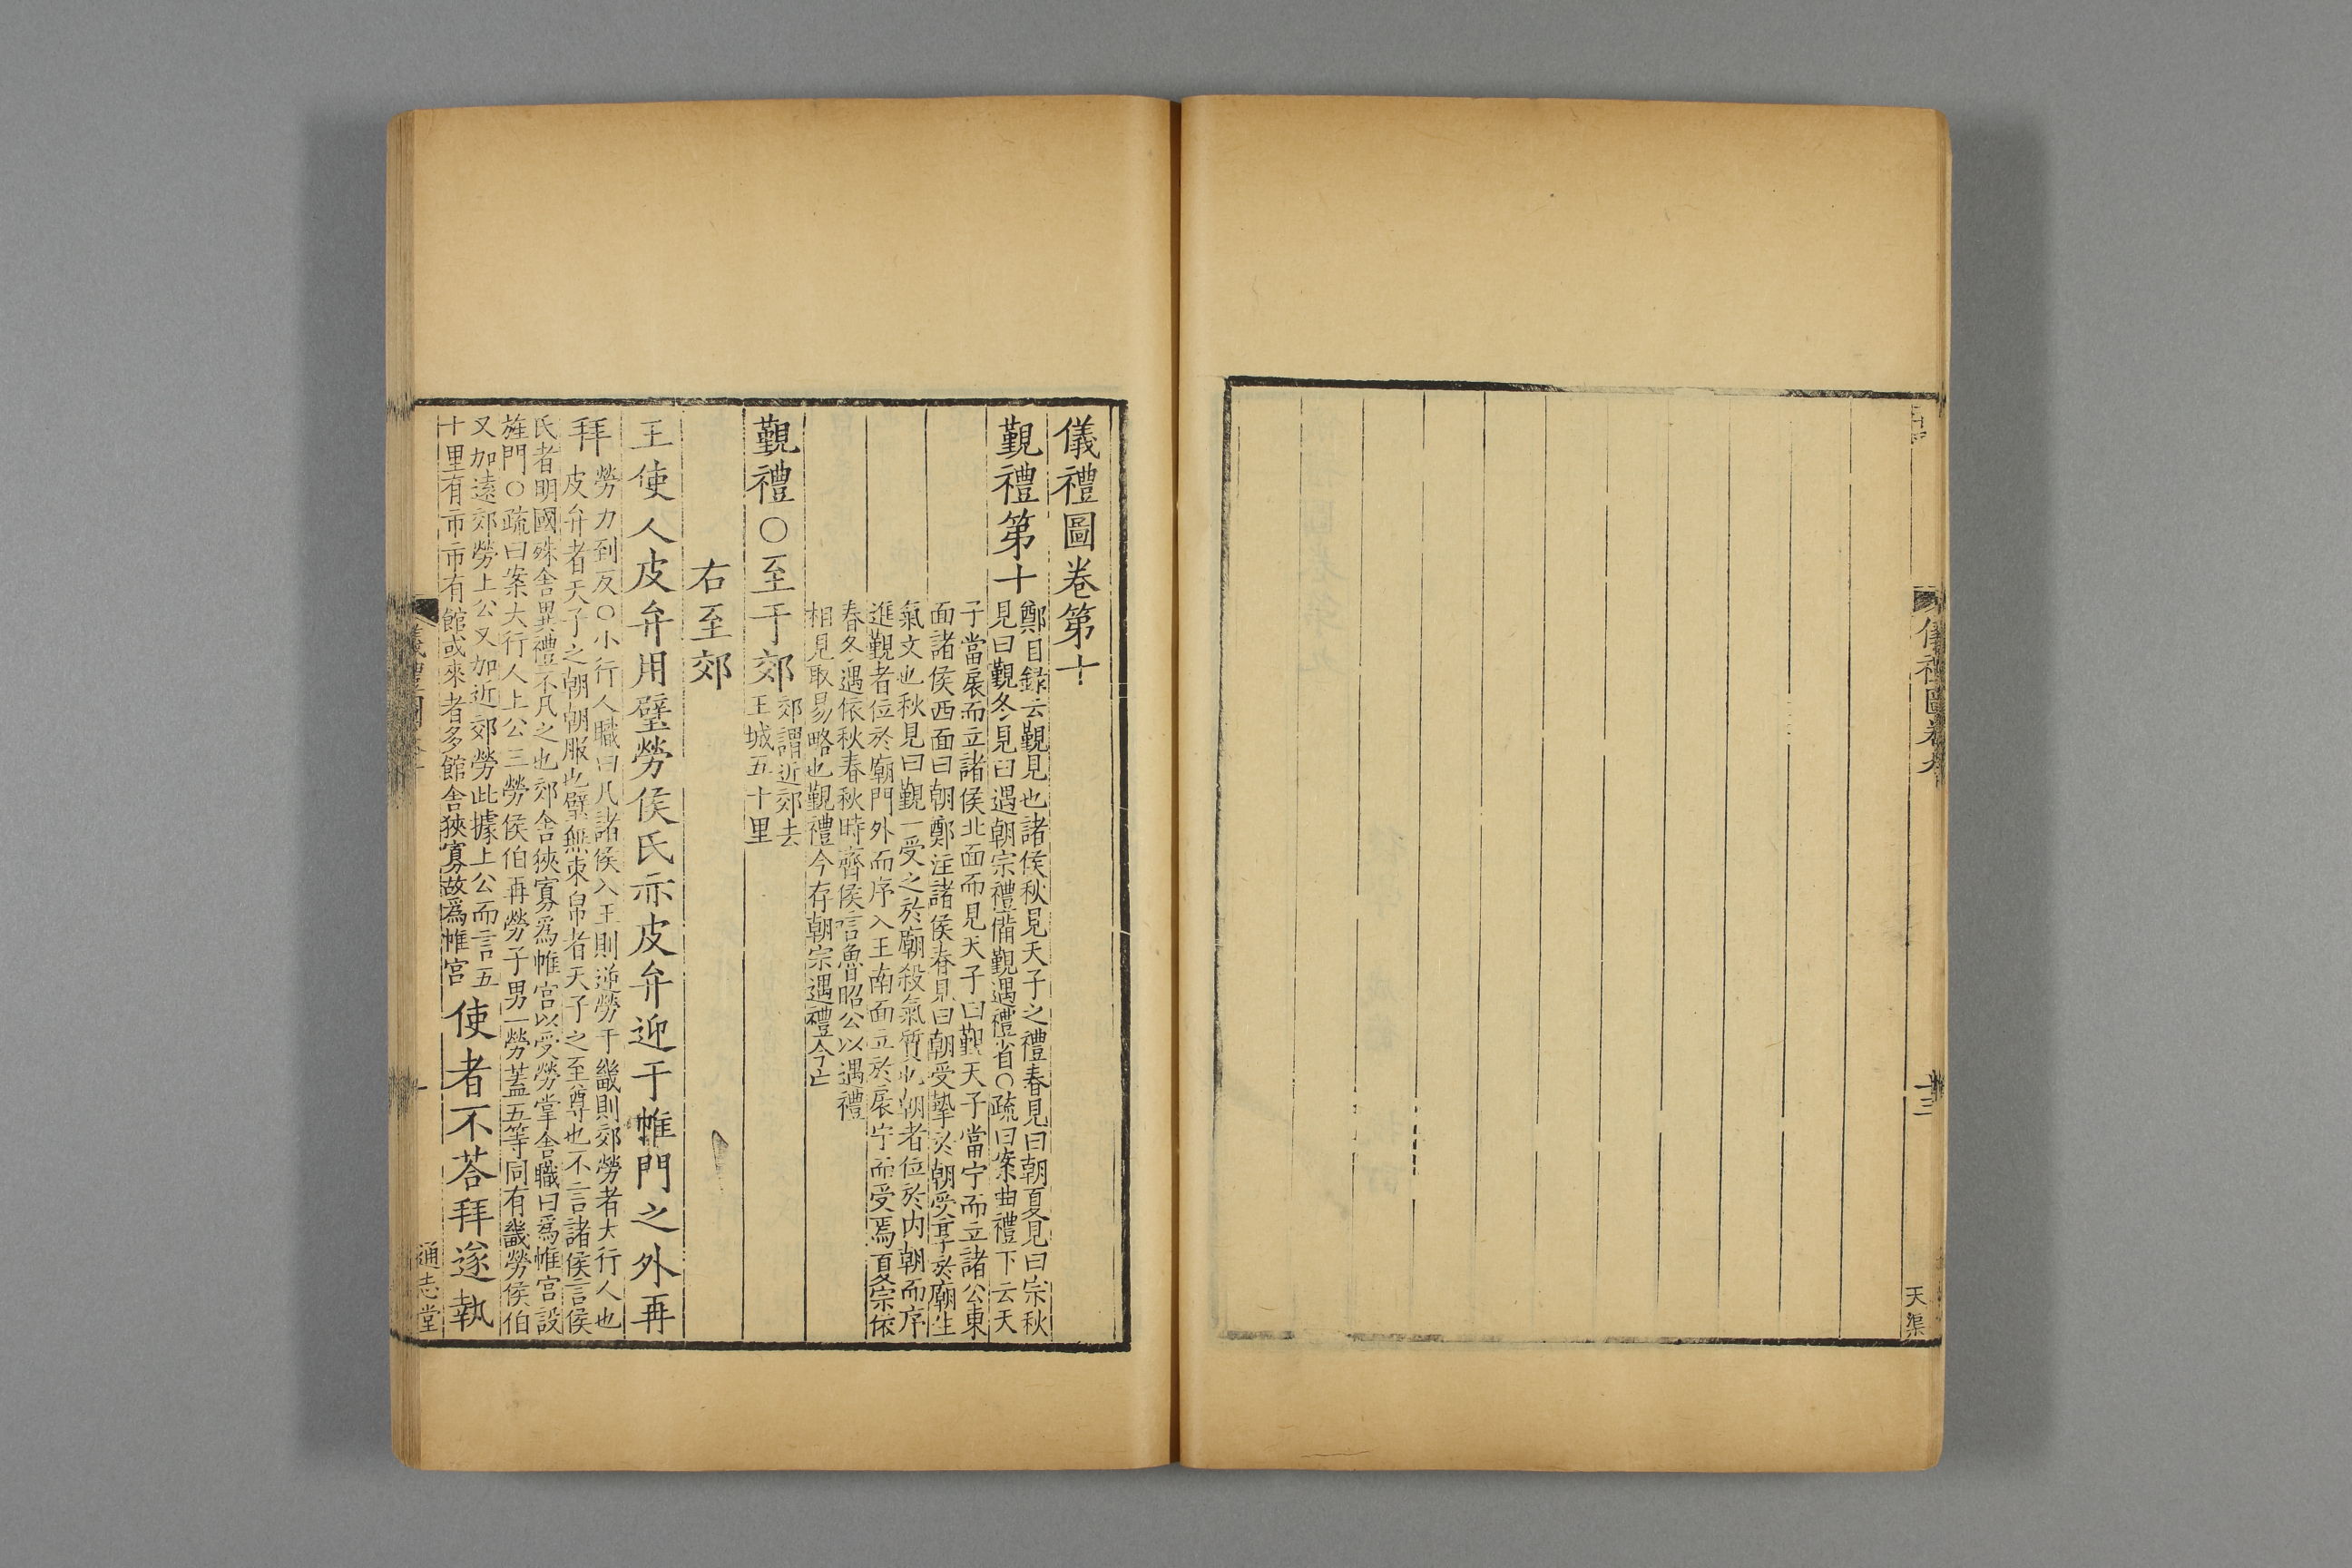 儀禮圖卷九
十三
天渠
儀禮圖卷第十
覲禮第十
鄭目録云覲見也諸侯秋見天子之禮春見曰朝夏見曰宗秋
見曰覲冬見曰遇朝宗禮備覲遇禮省○疏曰案曲禮下云天
子當扆而立諸侯北面而見天子曰覲天子當宁而立諸公東
面諸侯西面曰朝鄭注諸侯春見曰朝受摯於朝受享於廟生
氣文也秋見曰覲一受之於廟殺氣質也朝者位於内朝而序
進覲者位於廟門外而序入王南面立於扆宁而受焉夏宗依
春冬遇依秋春秋時齊侯唁魯昭公以遇禮
相見取易略也覲禮今存朝宗遇禮今亡
覲禮○至于郊
郊謂近郊去
王城五十里
右至郊
王使人皮弁用璧勞侯氏亦皮弁迎于帷門之外再
拜
勞力到反○小行人職曰凡諸侯入王則逆勞于畿則郊勞者大行人也
皮弁者天子之朝朝服也璧無束帛者天子之至尊也不言諸侯言侯
氏者明國殊舍異禮不凡之也郊舍狹寡爲帷宮以受勞掌舍職曰爲帷宮設
旌門○疏曰案大行人上公三勞侯伯再勞子男一勞蓋五等同有畿勞侯伯
又加遠郊勞上公又加近郊勞此據上公而言五
十里有市市有館或來者多館舍狹寡故爲帷宮
使者不荅拜遂執
儀禮圖卷十
一
通志堂